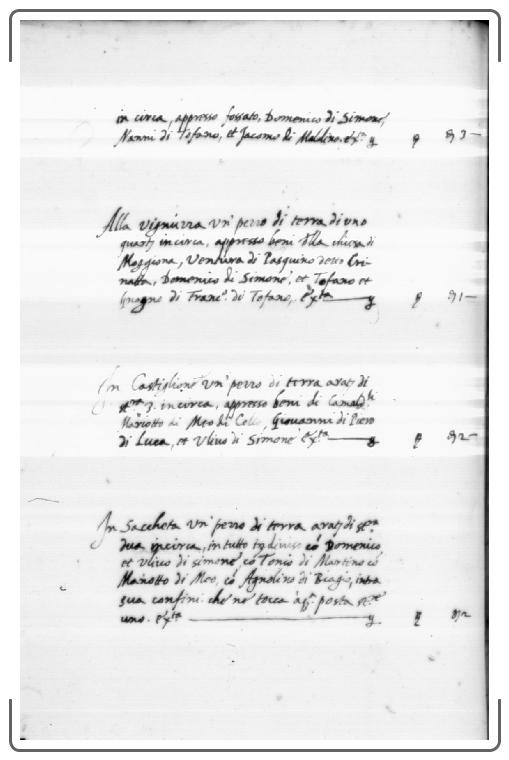 in circa, appresso fossato, Domenico di Simone,
Nanni di Tofano, et Jacomo di Maldino. exta g g 93-
Alla vignuzza un' pezzo di terra di uno
quarto in circa, appresso beni della chiesa di
Moggiona, Ventura di Pasquino detto Cri-
natta, Domenico di Simone, et Tofano et
Gnagno di Franco. di Tofano, exta g g 91-
In Castiglione un' pezzo di terra arat. di
3. in circa, appresso beni di Camald.li
Mariotto di Meo di Collo, Giovanni di Piero
di Luca, et Ulivo di Simone exta g g 92-
In Saccheta un' pezzo di terra arat. di
dua in circa, in tutto indiviso cō Domenico
et Ulivo di Simone, cō Tonio di Martino cō
Mariotto di Meo, cō Agnolino di Biagio, intra
sua confini. che ne tocca a posta
uno. exta g g